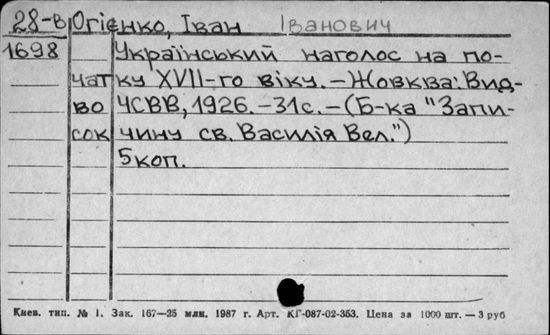 28-в Огієнко, Іван Іванович
1698 Український наголос на по-
чатку XVII-го віку. – Жовква: Вид-
во ЧСВВ, 1926. – 31с. – (Б-ка "Запи-
сок чину св. Василія Вел.")
5коп.
Киев. тип. № 1. Зак. 167—25 млн. 1987 г. Арт. КГ-087-02-353. Цена за 1000 шт. — 3 руб